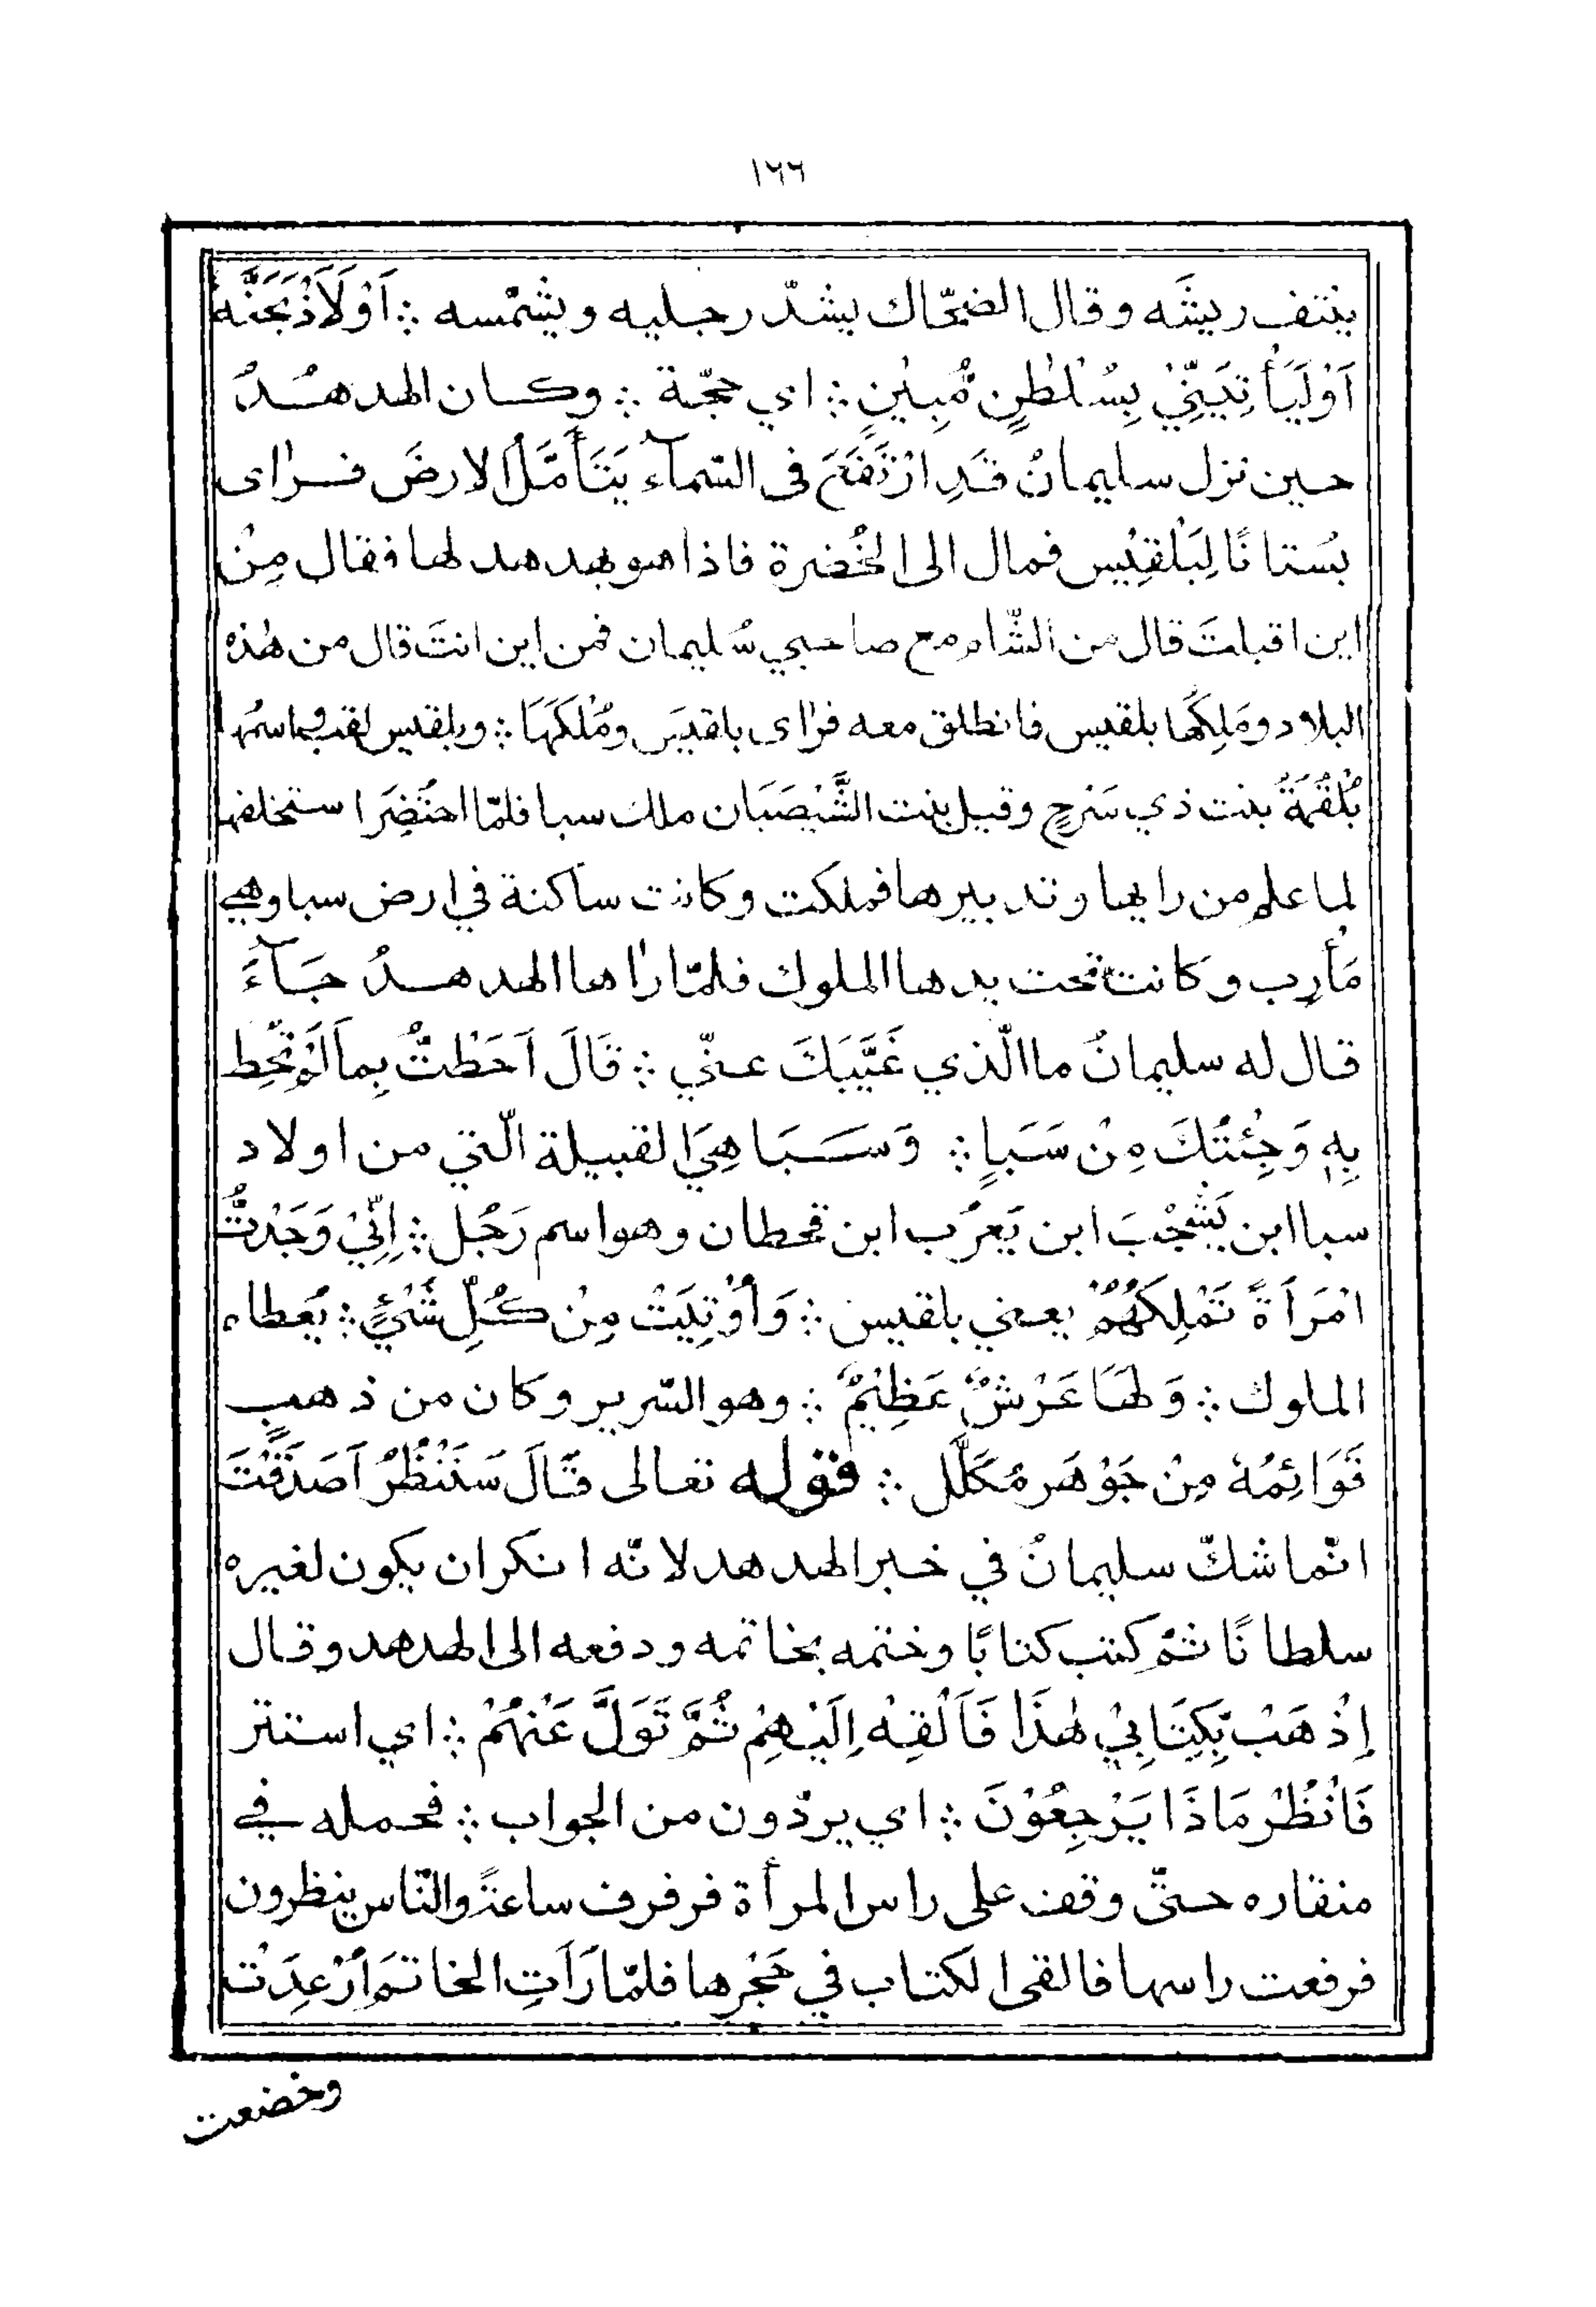 ١٦٦
ينتف ريشَه وقال الضحّاك يشدّ رجليه ويشمّسه ؞ اَوْلَاَذْبَحَنَّهٗ
اَوْلَيَأْتِيَنِّيْ بِسُلْطٰنٍ مُّبِيْنٍ ؞ اي حجّة ؞ وكان الهدهدُ
حين نزل سليمانُ قَدِ ارْتَفَعَ فى السّمآء يَتَأَمَّلُ الارضَ فراٰى
بُستانًا لِبَلْقِيْس فمال الى الخُضرة فاذا هو بهدهد لها فقال مِنْ
اين اقبلتَ قال من الشّام مع صاحبي سُليمان فمن اين انتَ قال من هٰذه
البلاد ومَلِكُها بلقيس فانطلق معه فراٰى بلقيسَ ومُلْكَهَا ؞ وبلقيس لقب واسمُها
بُلْقُمَةُ بنت ذي سَرْحٍ وقيل بنت الشَّيْصَبَان ملك سبا فلمّا احتُضِرَ استخلفها
لما علم من رايها وتدبيرها فملكت وكانت ساكنة في ارض سبا وهي
مَأْرِب وكانت تحت يدها الملوك فلمّا راٰها الهدهدُ جَآءَ
قال له سليمانُ ما الّذي غَيَّبَكَ عنّي ؞ قَالَ اَحَطْتُّ بِمَا لَمْ تُحِط
بِهٖ وَجِئْتُكَ مِنْ سَبَإٍ ؞ وَسَبَا هِيَ القبيلة الّتي من اولاد
سبا ابن يَشْجُبَ ابن يَعرُب ابن قحطان وهو اسم رَجُل ؞ اِنِّيْ وَجَدْتُّ
امْرَاَةً تَمْلِكُهُمْ يعني بلقيس ؞ وَاُوْتِيَتْ مِنْ كُلِّ شَيْءٍ ؞ يَعطاه
الملوك ؞ وَلَهَا عَرْشٌ عَظِيْمٌ ؞ وهو السّرير وكان من ذهبٍ
قَوَائِمُهٗ مِنْ جَوْهَر مُكَلَّل ؞ قوله تعالى قَالَ سَنَنْظُرُ اَصَدَقْتَ
انّما شكّ سليمانُ في خبر الهدهد لانّه انكر ان يكون لغيره
سلطانًا ثمّ كتب كتابًا وختمه بخاتمه ودفعه الى الهدهد وقال
اِذْهَبْ بِّكِتَابِيْ هٰذَا فَاَلْقِهْ اِلَيْهِمْ ثُمَّ تَوَلَّ عَنْهُمْ ؞ اي استتر
فَانْظُرْ مَاذَا يَرْجِعُوْنَ ؞ اي يردّون من الجواب ؞ فحمله في
منقاره حتّى وقف على راس المرأة فرفرف ساعةً والنّاس ينظرون
فرفعت راسها فالقى الكتاب في حَجْرِها فلمّا رَاَتِ الخاتمَ اُرْعِدَتْ
وخضعت